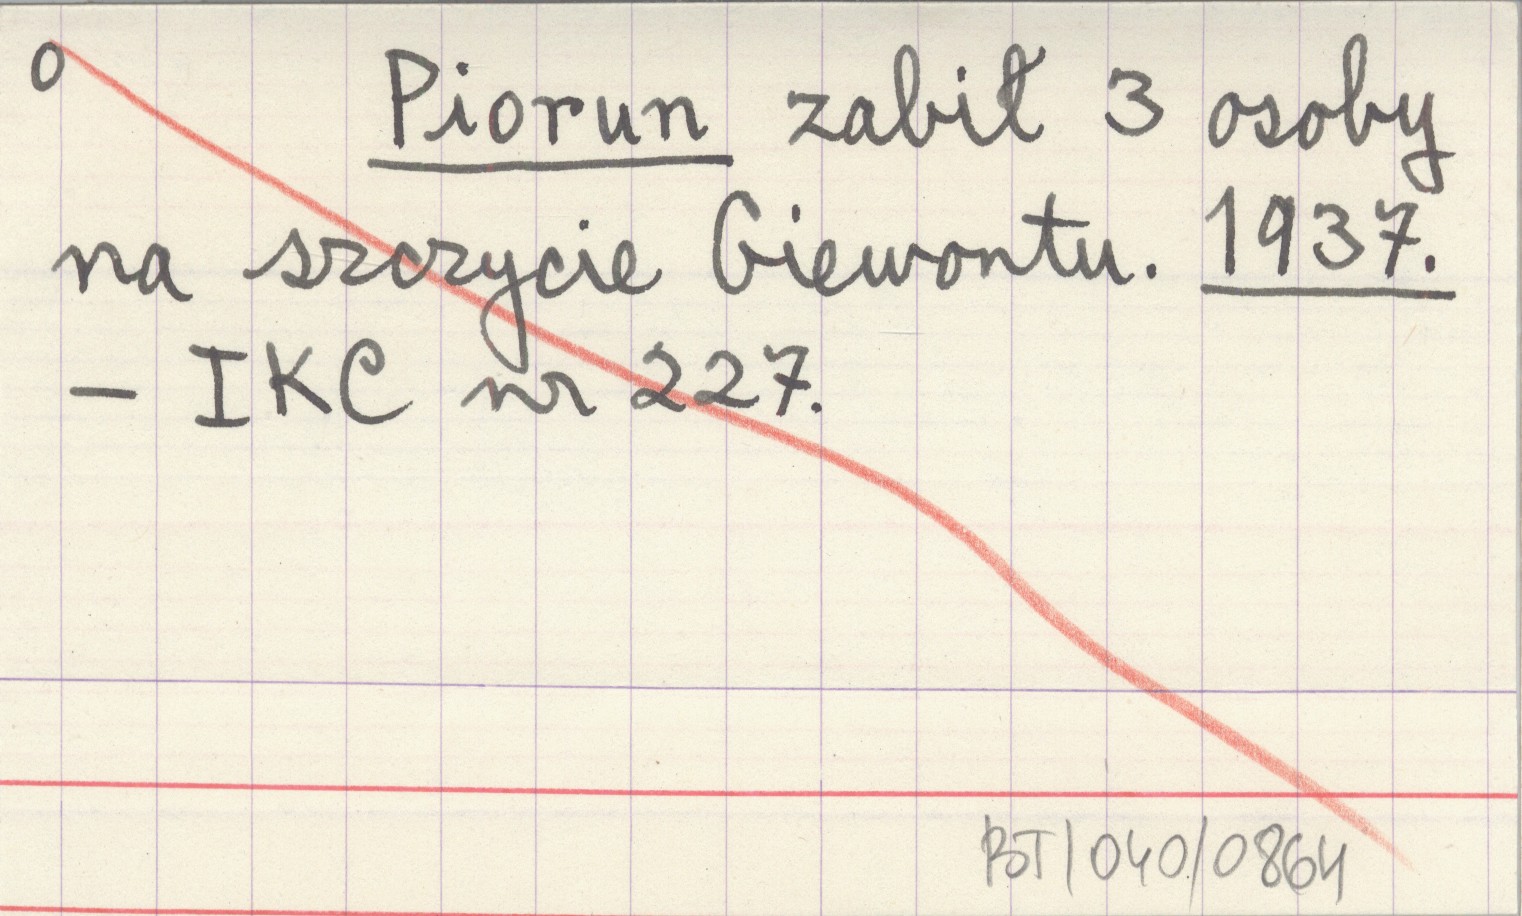 0
Piorun zabił 3 osoby
na szczycie Giewontu. 1937.
– IKC nr 227.
BT/040/0864